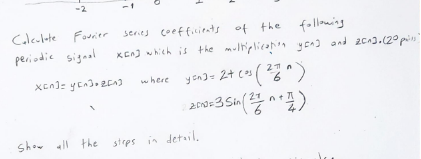 -2 -1
Calculate Fourier series coefficients of the following
periodic signal x[n] which is the multiplication y[n] and z[n]. (20 points
x[n]= y[n]•z[n] where y[n]= 2+ cos(2π/6 n)
z[n]=3 Sin(2π/6 n + π/4)
Show all the steps in detail.